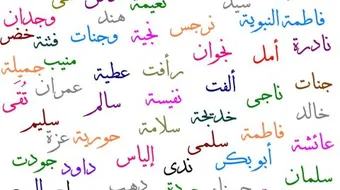 نعيمة
هند
فاطمة النبوية
نرجس
نجية
وجنات
فتنة
خضر
وجدان
نادرة
أمل
نجوان
رأفت
عطية
منيب
جميلة
جنات
ناجى
ألفت
نفيسة
سالم
عمران
تُقَى
خالد
خديجة
سلامة
حورية
عزة
سليم
عائشة
فاطمة
سلمى
أبوبكر
ندى
إلياس
داود
جودت
سلمان